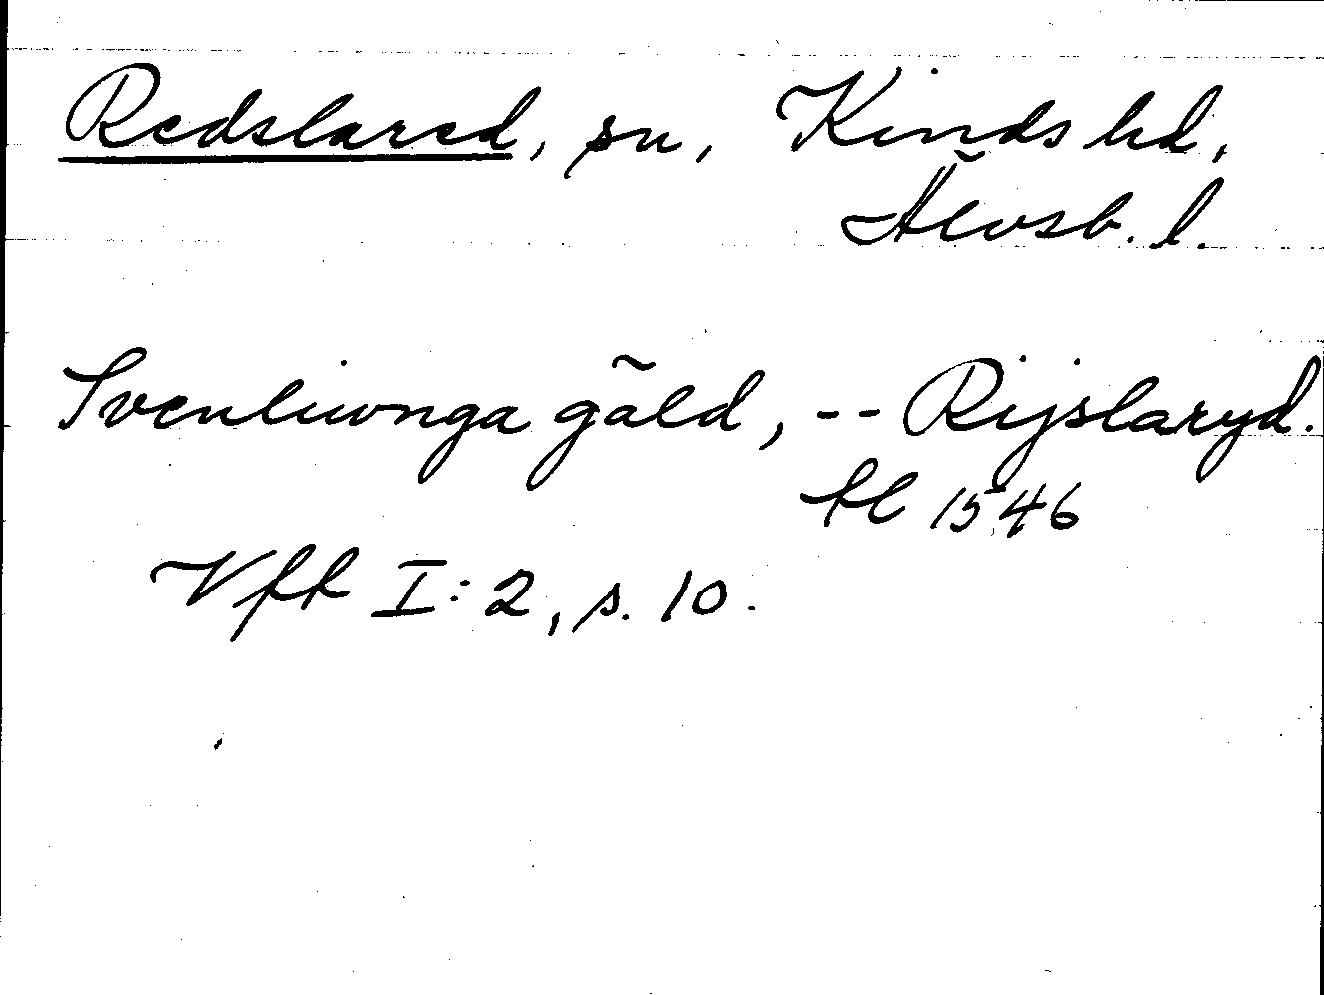 Redslared, sn, Kinds hd,
Älvsb. l.
Svenliunga gäld, -- Rijslaryd.
fl 1546
Vff I:2, s. 10.